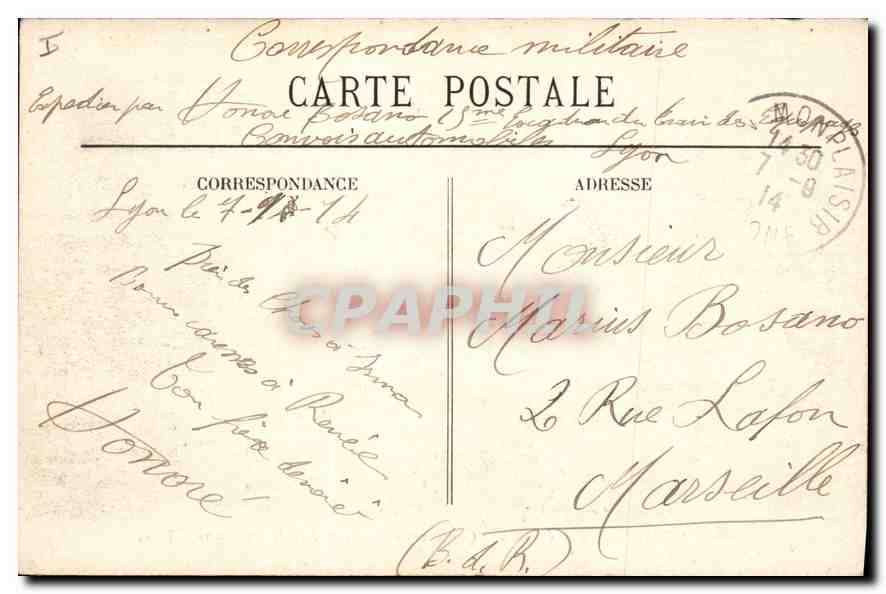 I
Correspondance militaire
CARTE POSTALE
Expedier par Honoré Bosano 15me Escadron du train des Equipages
Convois automobiles Lyon
MONPLAISIR
14 30
7 - 9
14
CORRESPONDANCE
ADRESSE
Lyon le 7-9-14
Bien des choses à
Bonnes caresses à Renée
Ton frère dévoué
Honoré
Monsieur
Marius Bosano
2 Rue Lafon
Marseille
(B. d. R.)
CPAPHIL